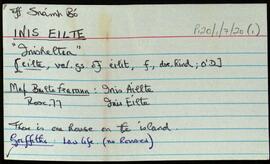 Snámh Bó
P20/1/7/20(1)
INIS EILTE
"Inisheltia"
[eilte, val. gs. of eilit, f, doe, hind, O'D]
Map Bartle Fearann: Inis Ailte
Rosc. 77 Inis Eilte
There is one house on the island.
Griffiths: Law life. (no houses)